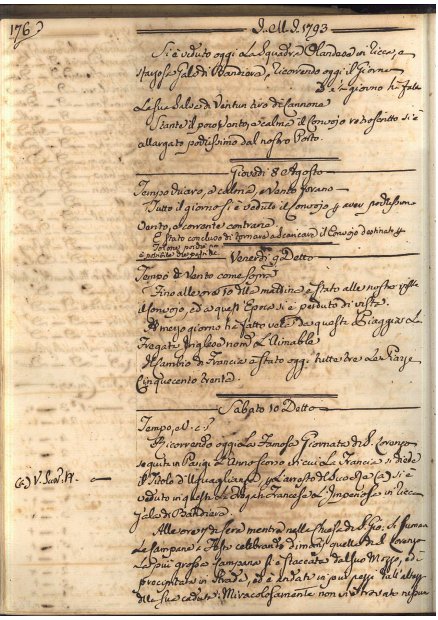 176
J.M.J. 1793
Si è veduto oggi la Squadra Olandese in ricca, e
sfarzosa Gala di Bandiera, ricorrendo oggi il Giorno
giorno hà fatto
la sua salva di Ventun tiro di Cannone
Stante il poco vento, e calma il Convojo retroscritto si è
allargato pochissimo dal nostro Porto.
Giovedi 8 Agosto
Tempo chiaro, e calma, e Vento
Tutto il giorno si è veduto il Convojo p aver pochissimo
Vento, e corrente contraria.
È stato concluso di tornare a scaricare il Convojo destinato p
Tolone
Venerdi 9 Detto
Tempo e Vento come sopra
Fino alle ore 10 della mattina è stato alle nostre viste
il Convojo, ed a quest'Epoca si è perduto di vista.
A mezzo giorno hà fatto vela da queste Piaggia La
Fregata Inglese nom.ta L'Aimable
Il Cambio di Francia è stato oggi tutte tre le Piazze
Cinquecento trenta.
Sabato 10 Detto
Tempo, e V. c. s.
Ricorrendo oggi la Famosa Giornata di S. Lorenzo
seguita in Parigi l'Anno scorso in cui la Francia si diede
il Titolo d'Uguaglianza, p l'arresto del suo Rè (a) si è
veduto in questo la Fregata Francese L'Imperiosa in ricca
Gala di Bandiera.
(a) V. Suor. A.
Alle ore di sera mentre nella Chiesa di S. Gio. si suonava
le Campane a Festa celebrando dimani quella di S. Lorenzo
la più grossa Campana si è staccata dal suo Mozzo, ed è
precipitata in Strada, ed è andata in più pezzi
della sua caduta: Miracolosamente non vi si trovato